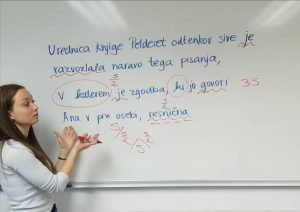 Urednica knjige Petdeset odtenkov sive je
razvozlala naravo tega pisanja,
s/z
v katerem je zgodba, ki jo govori 3S
Ana v prvi osebi, resnična.